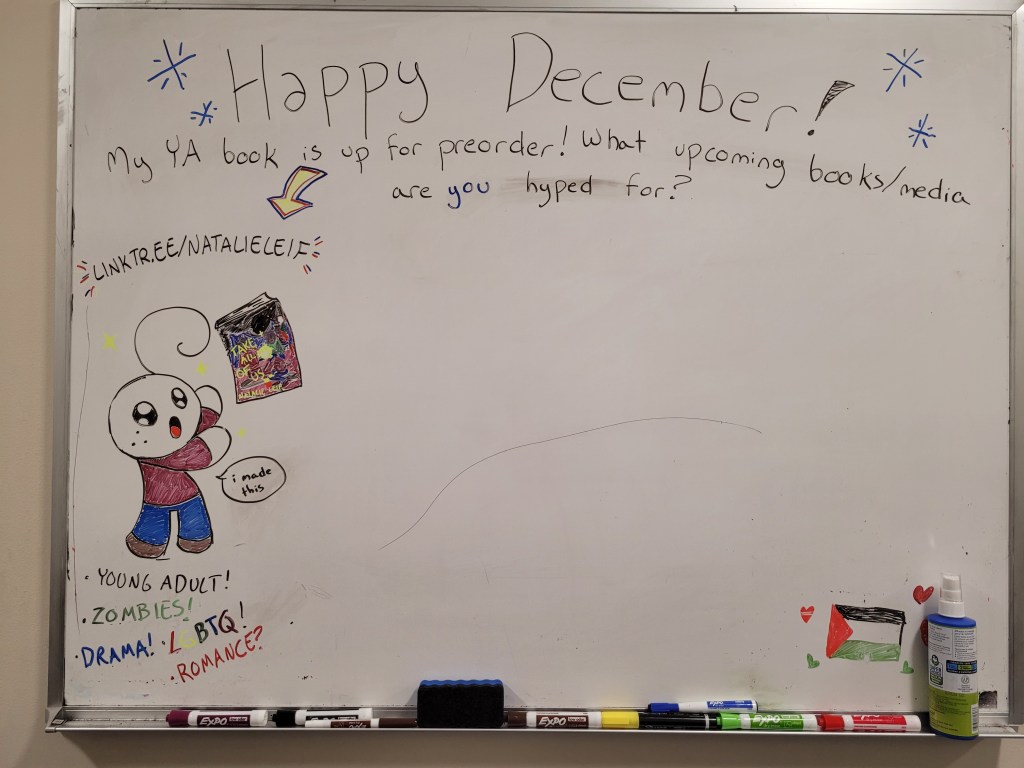 Happy December!
My YA book is up for preorder! What upcoming books/media
are you hyped for?
LINKTR.EE/NATALIELEIF
TAKE
ALL
OF US
NATALIE LEIF
i made
this
· YOUNG ADULT!
· ZOMBIES!
· DRAMA! · LGBTQ!
· ROMANCE?
EXPO
EXPO
EXPO
EXPO
EXPO